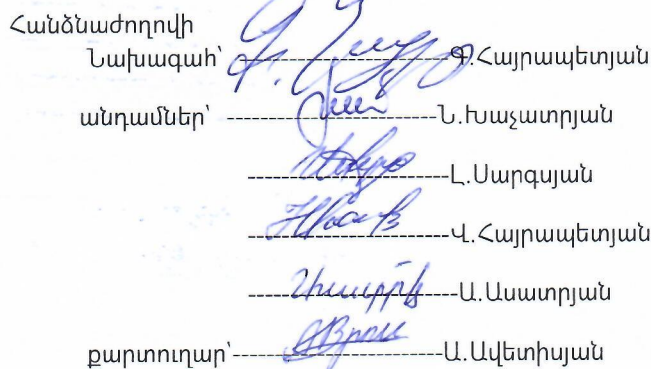 Հանձնաժողովի
Նախագահ՝ ---------------------Գ.Հայրապետյան
անդամներ՝ ---------------------Ն.Խաչատրյան
---------------------Լ.Սարգսյան
---------------------Վ.Հայրապետյան
---------------------Ա.Ասատրյան
քարտուղար՝---------------------Ա.Ավետիսյան